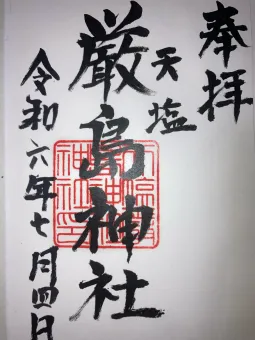 奉拝
天塩
厳島神社
令和六年七月四日